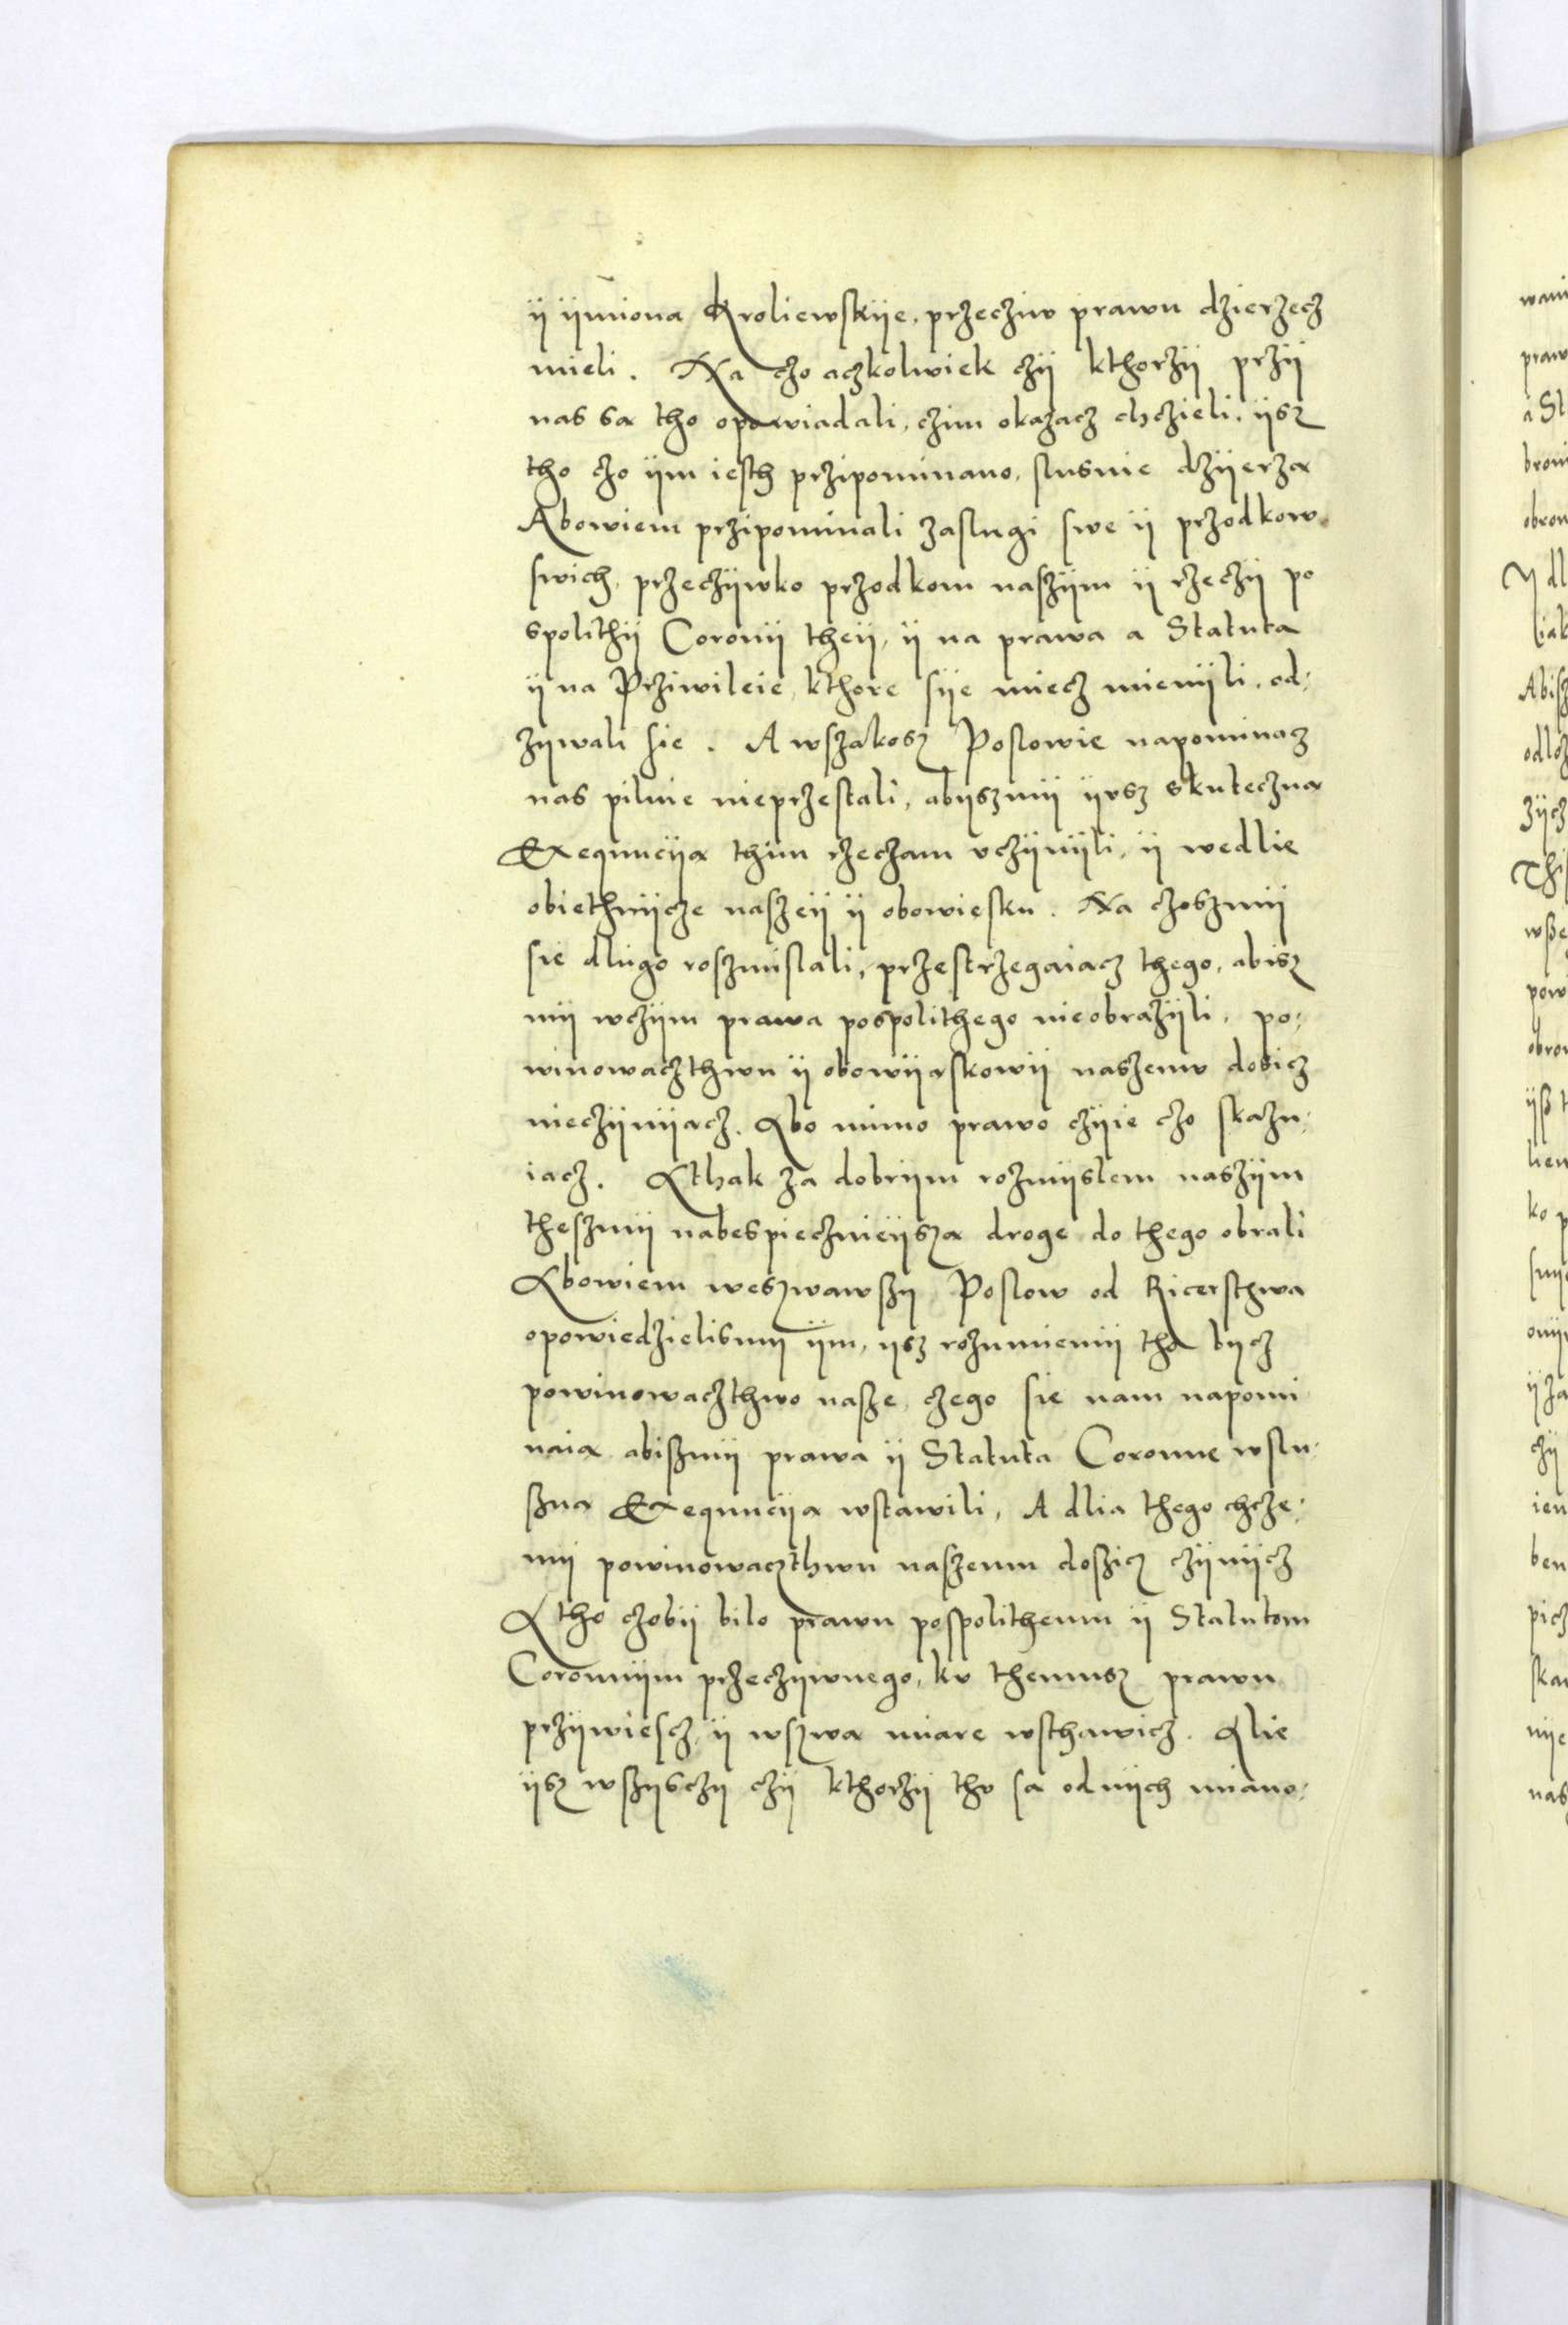 ÿ ÿmiona Kroliewskÿe, przecziw prawu dzierzecz
mieli. Na czo aczkolwiek czÿ kthorzÿ przÿ
nas sa tho opowiadali, czim okazacz chczieli, ÿsz
tho czo ÿm iesth przipominano, slusnie dzÿerza
Abowiem przipominali zaslugi swe ÿ przodkow
swich, przeczÿwko przodkom naszÿm ÿ rzeczÿ po
spolithÿ Coronÿ theÿ, ÿ na prawa a Statuta
ÿ na Prziwileie, kthore sÿe miecz mienÿli, od:
zÿwali sie. A wszakosz Poslowie napominacz
nas pilnie nieprzestali, abÿszmÿ ÿvsz skuteczna
Exequucÿa thim rzecham vczÿnÿli, ÿ wedlie
obiethnÿcze naszeÿ ÿ obowiesku. Na czoszmÿ
sie dlugo roszmislali, przestrzegaiacz thego, abisz
mÿ wczÿm prawa pospolithego nieobrazÿli, po:
winowaczthwu ÿ obowÿaskowÿ naszemv dosicz
nieczÿnÿacz. Abo mimo prawo czÿie czo skazu:
iacz. A thak za dobrÿm rozmÿslem naszÿm
theszmÿ nabespiecznieÿsza droge do thego obrali
Abowiem weszwawszÿ Poslow od Ricersthwa
opowiedzielismÿ ÿm, ÿsz rozumiemÿ tho bÿcz
powinowaczthwo nasze, czego sie nam napomi
naia abiszmÿ prawa ÿ Statuta Coronne wslu:
szna Exequucÿa wstawili, A dlia thego chcze:
mÿ powinowaczthwu naszemu doszicz czÿnÿcz
A tho czobÿ bilo prawu pospolithemu ÿ Statutom
Coronnÿm przeczÿwnego, kv themusz prawu
przÿwiescz, ÿ wszwa miare wsthawicz. Alie
ÿsz wszÿsczÿ czÿ kthorzÿ thv sa od nÿch miano: